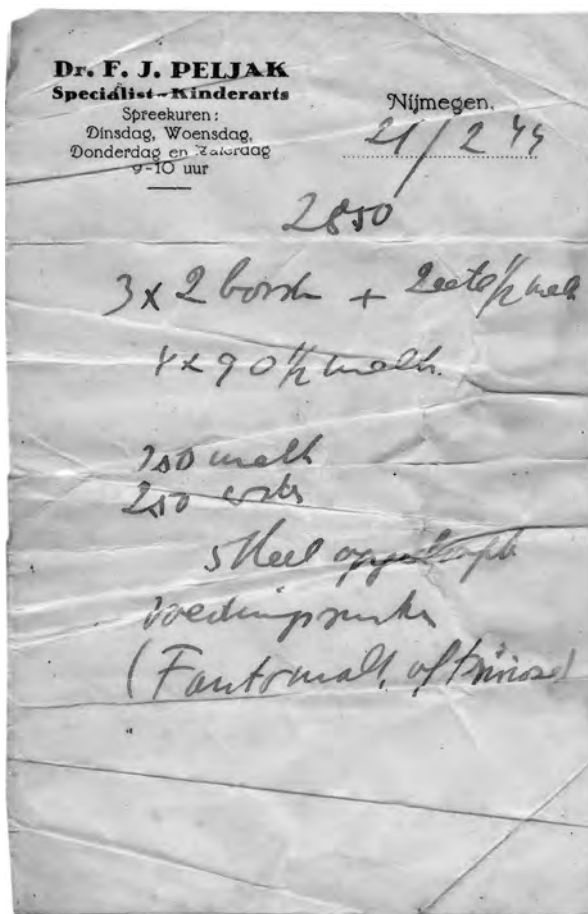 Dr. F. J. PELJAK
Specialist-Kinderarts
Spreekuren:
Dinsdag, Woensdag,
Donderdag en Zaterdag
9-10 uur
Nijmegen,
21/2 44
2850
3 x 2 borst + 2 ½ melk
4 x 90 ½ melk
250 melk
250 water
5 Meel
voedingssuiker
(Fantomalt of